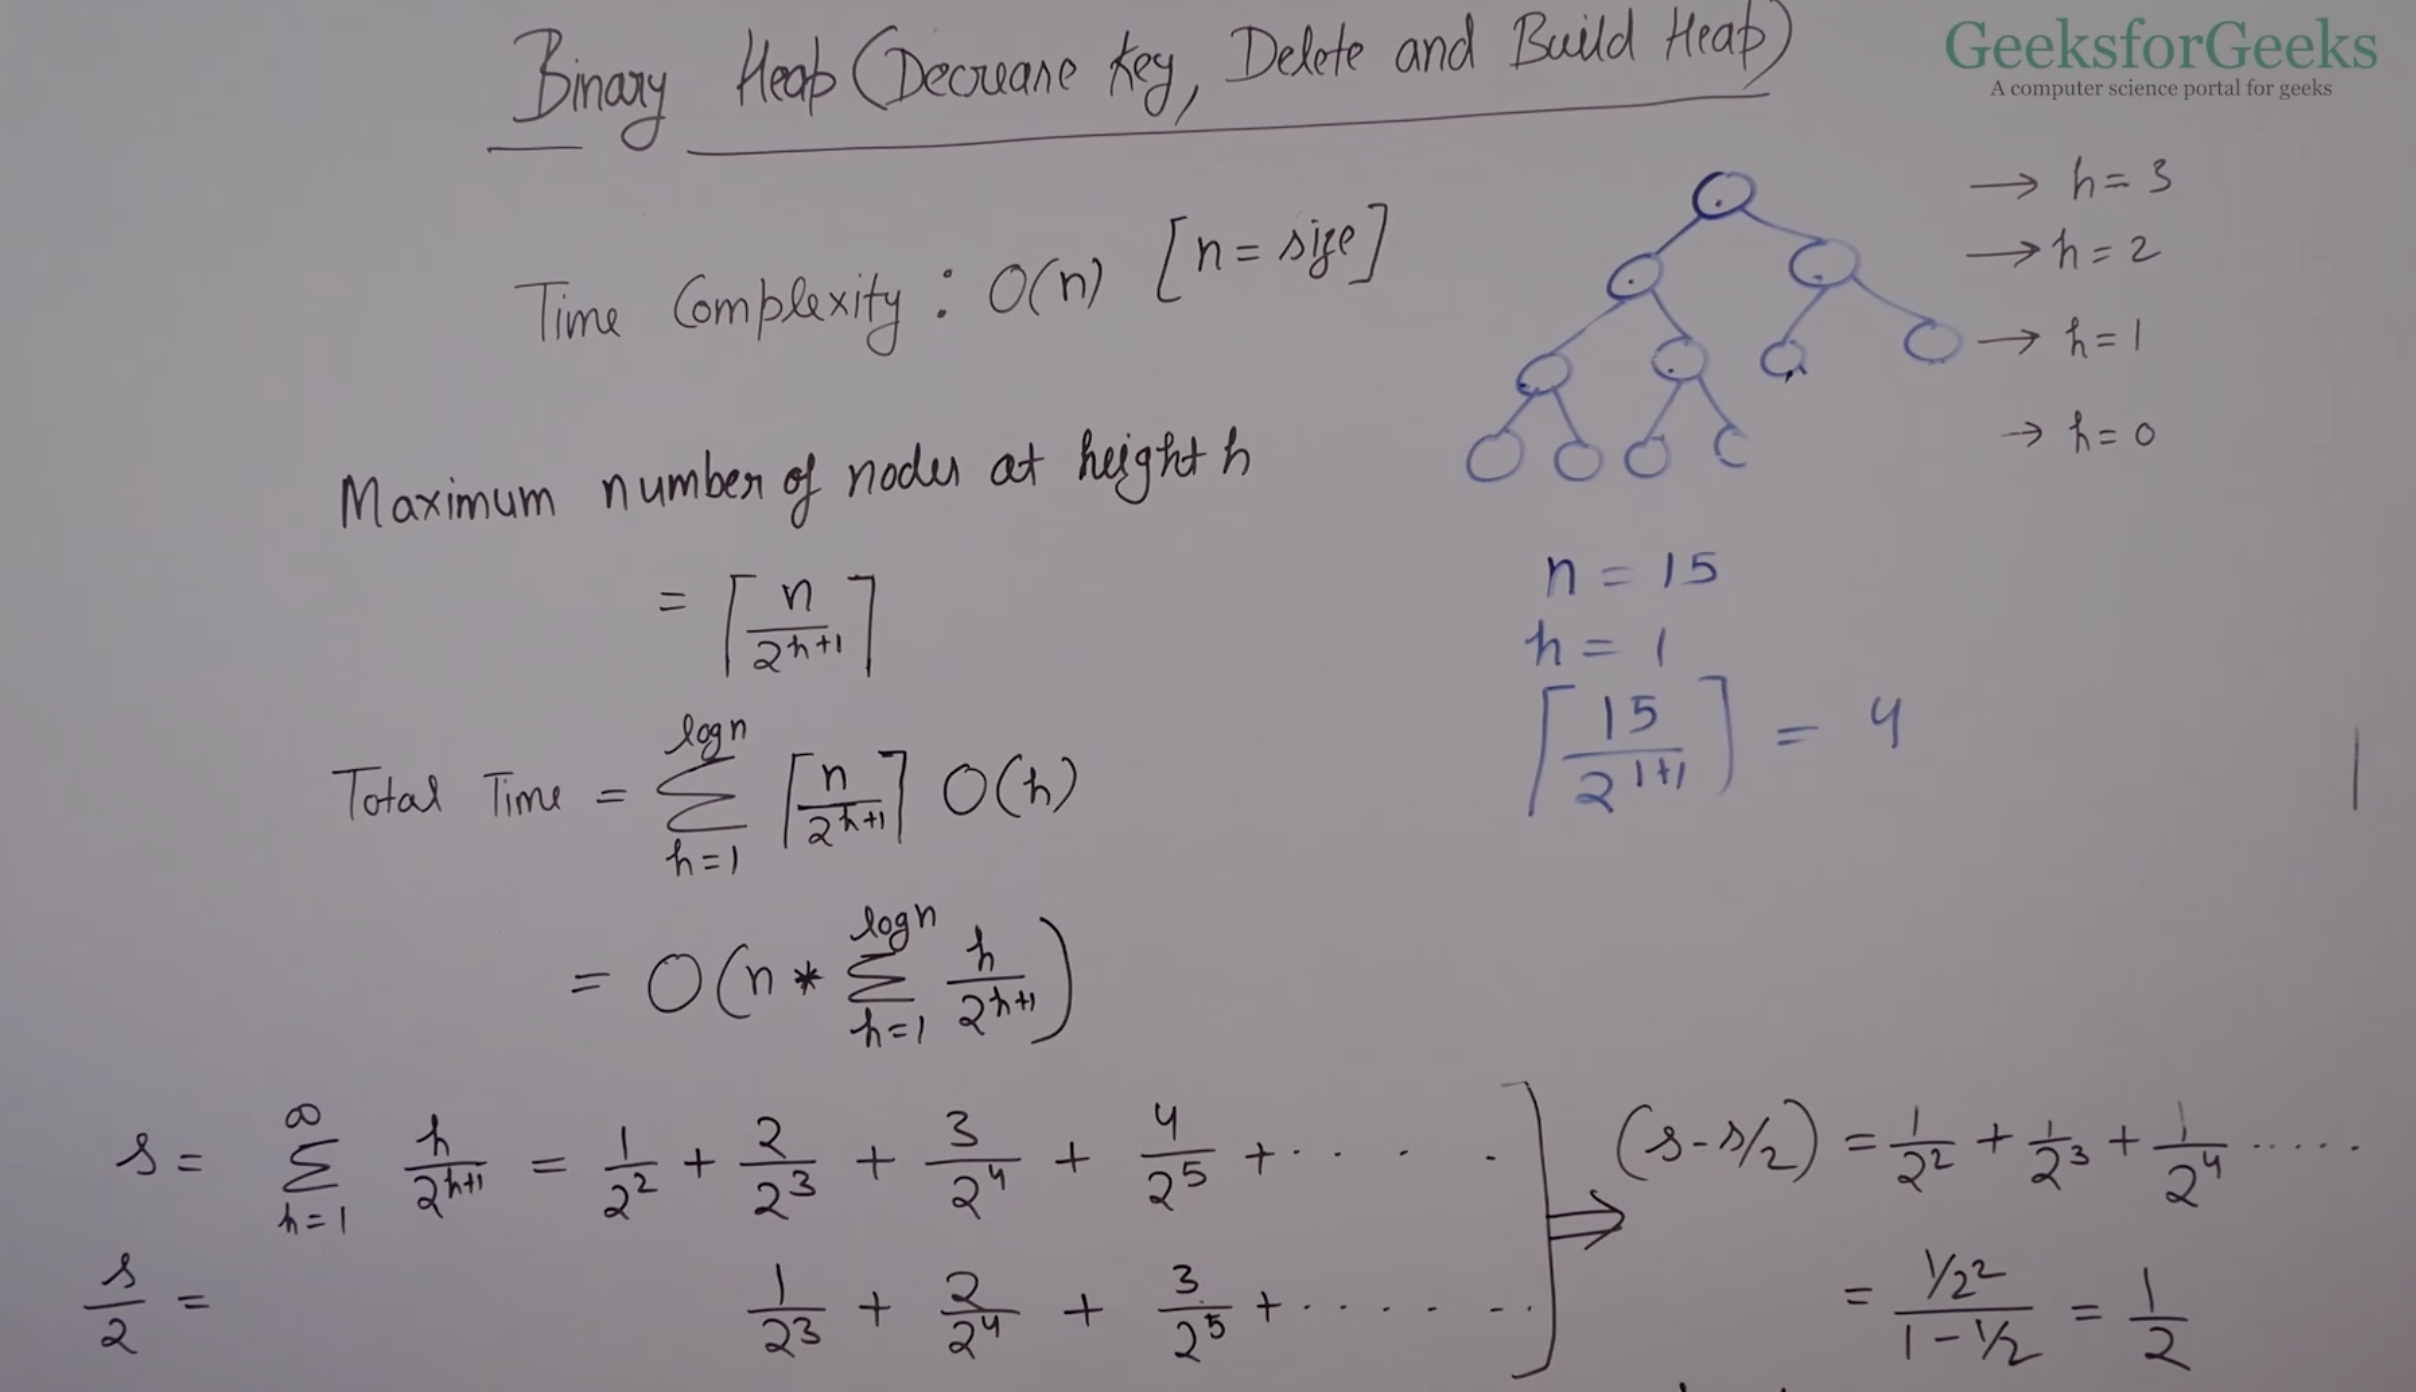 Binary Heap (Decrease Key, Delete and Build Heap)
GeeksforGeeks
A computer science portal for geeks
Time Complexity : O(n) [n = size]
→ h = 3
→ h = 2
→ h = 1
→ h = 0
Maximum number of nodes at height h
= ⌈n/2^(h+1)⌉
n = 15
h = 1
⌈15/2^(1+1)⌉ = 4
Total Time = Σ_{h=1}^{log n} ⌈n/2^(h+1)⌉ O(h)
= O(n * Σ_{h=1}^{log n} h/2^(h+1))
s = Σ_{h=1}^{∞} h/2^(h+1) = 1/2^2 + 2/2^3 + 3/2^4 + 4/2^5 + . . . .
s/2 = 1/2^3 + 2/2^4 + 3/2^5 + . . . . . .
⇒ (s - s/2) = 1/2^2 + 1/2^3 + 1/2^4 .....
= (1/2^2)/(1 - 1/2) = 1/2